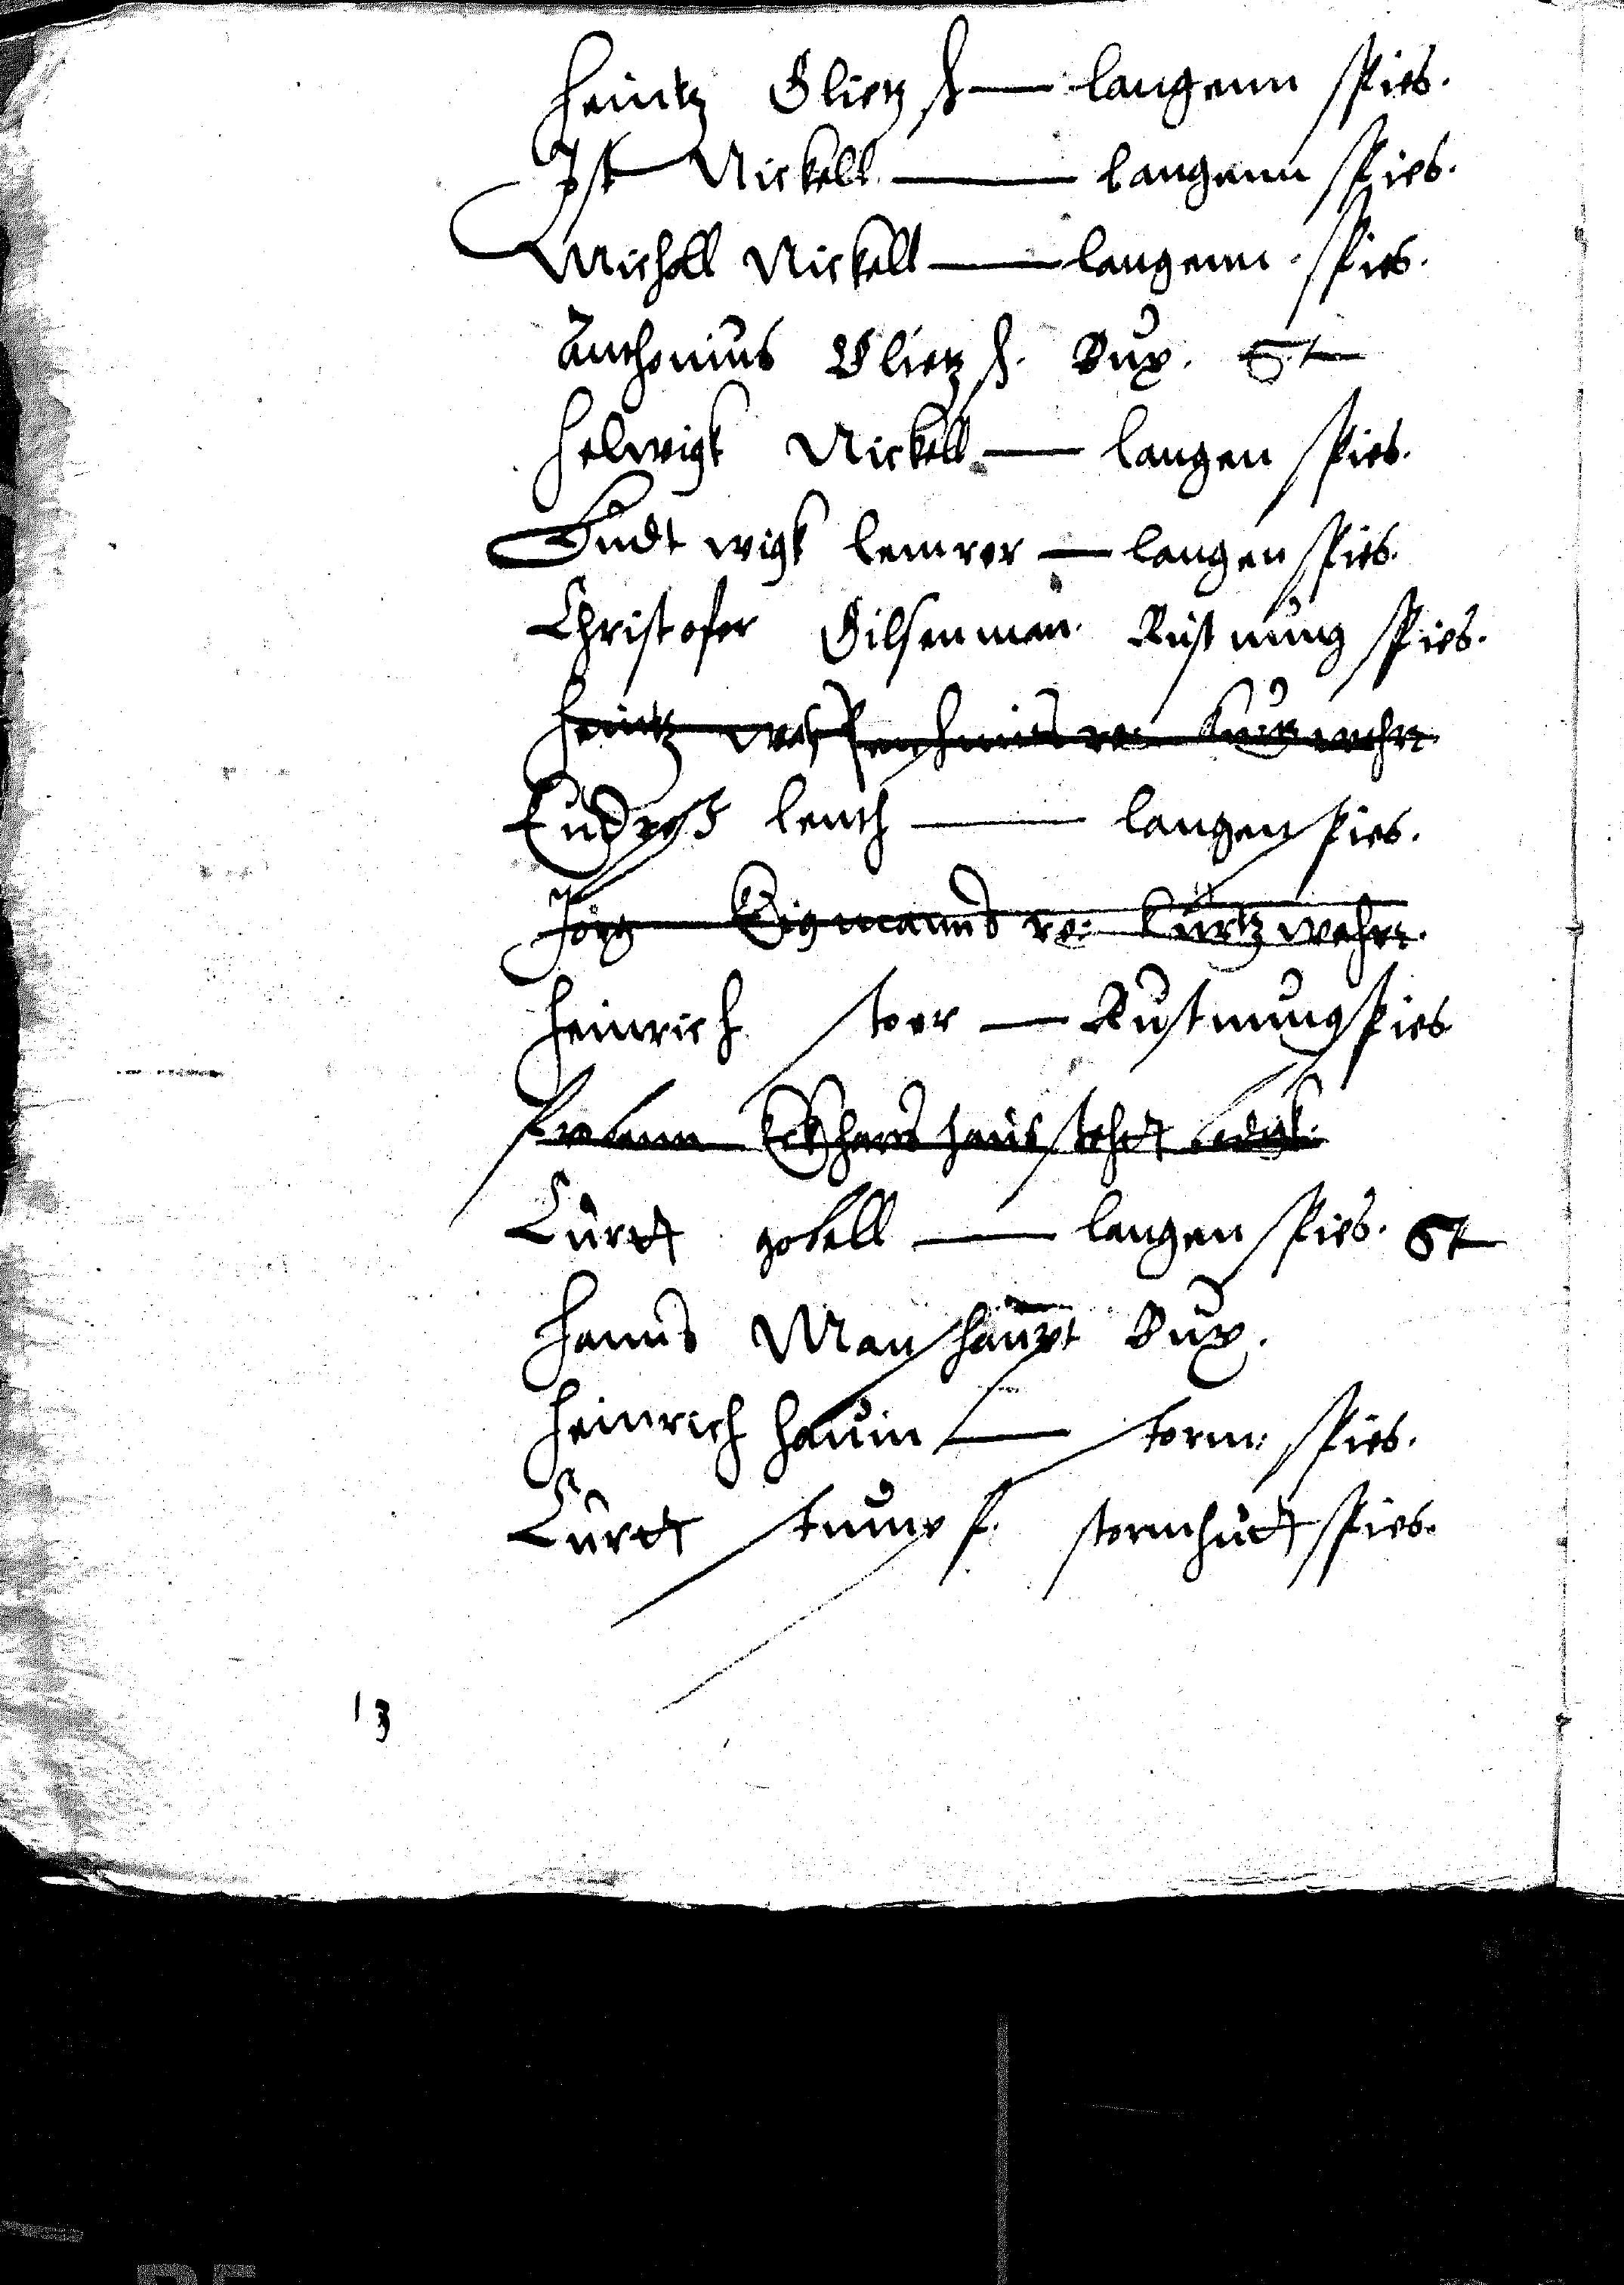 Heintz Glietzs — langenn spies.
Jost Nickell — langenn spies.
Micholl Nickell — langenn spies.
Anthonius Glietzs. Bux. St
Helwigk Nickell — langen spies.
Ludtwigk — langen spies.
Christofer Gilsenman. Rustnung spies.
Heintz Kurtzwehre
Endres — langen spies.
Jörg re: Kurtzwehre.
Heinrich stoer — Rustnung spies
haus stehet ledigk.
Curtt gobell — langen spies. St
Hanns Manhaupt Bux.
Heinrich — storm: spies.
Curtt stumpf. stormhudt spies.
13